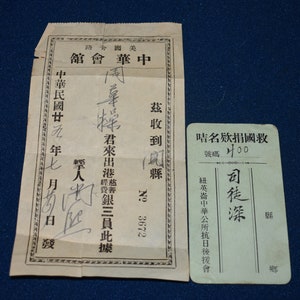 中華會舘
茲收到開縣
No 3672
君來出港慈善經費銀三員此據
經手人
中華民國廿五年七月日發
救國捐欵名咭
號碼 400
縣鄉
司徒深
紐英崙中華公所抗日後援會